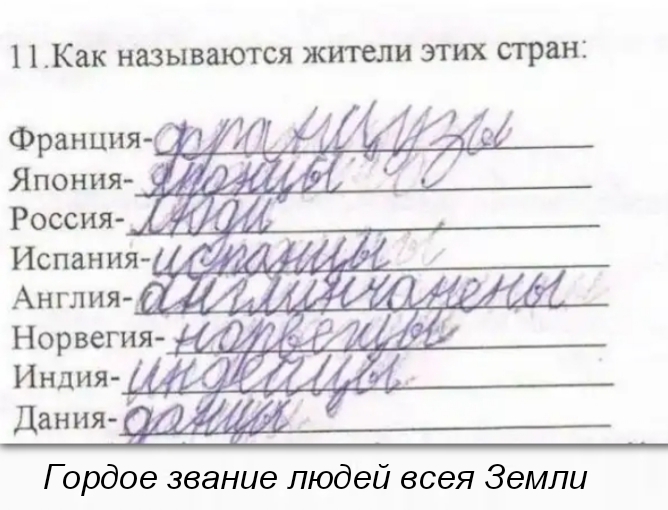 11.Как называются жители этих стран:
Франция-французы
Япония-японцы
Россия-люди
Испания-испанцы
Англия-англинчанены
Норвегия-норвегцы
Индия-индейцы
Дания-данцы
Гордое звание людей всея Земли